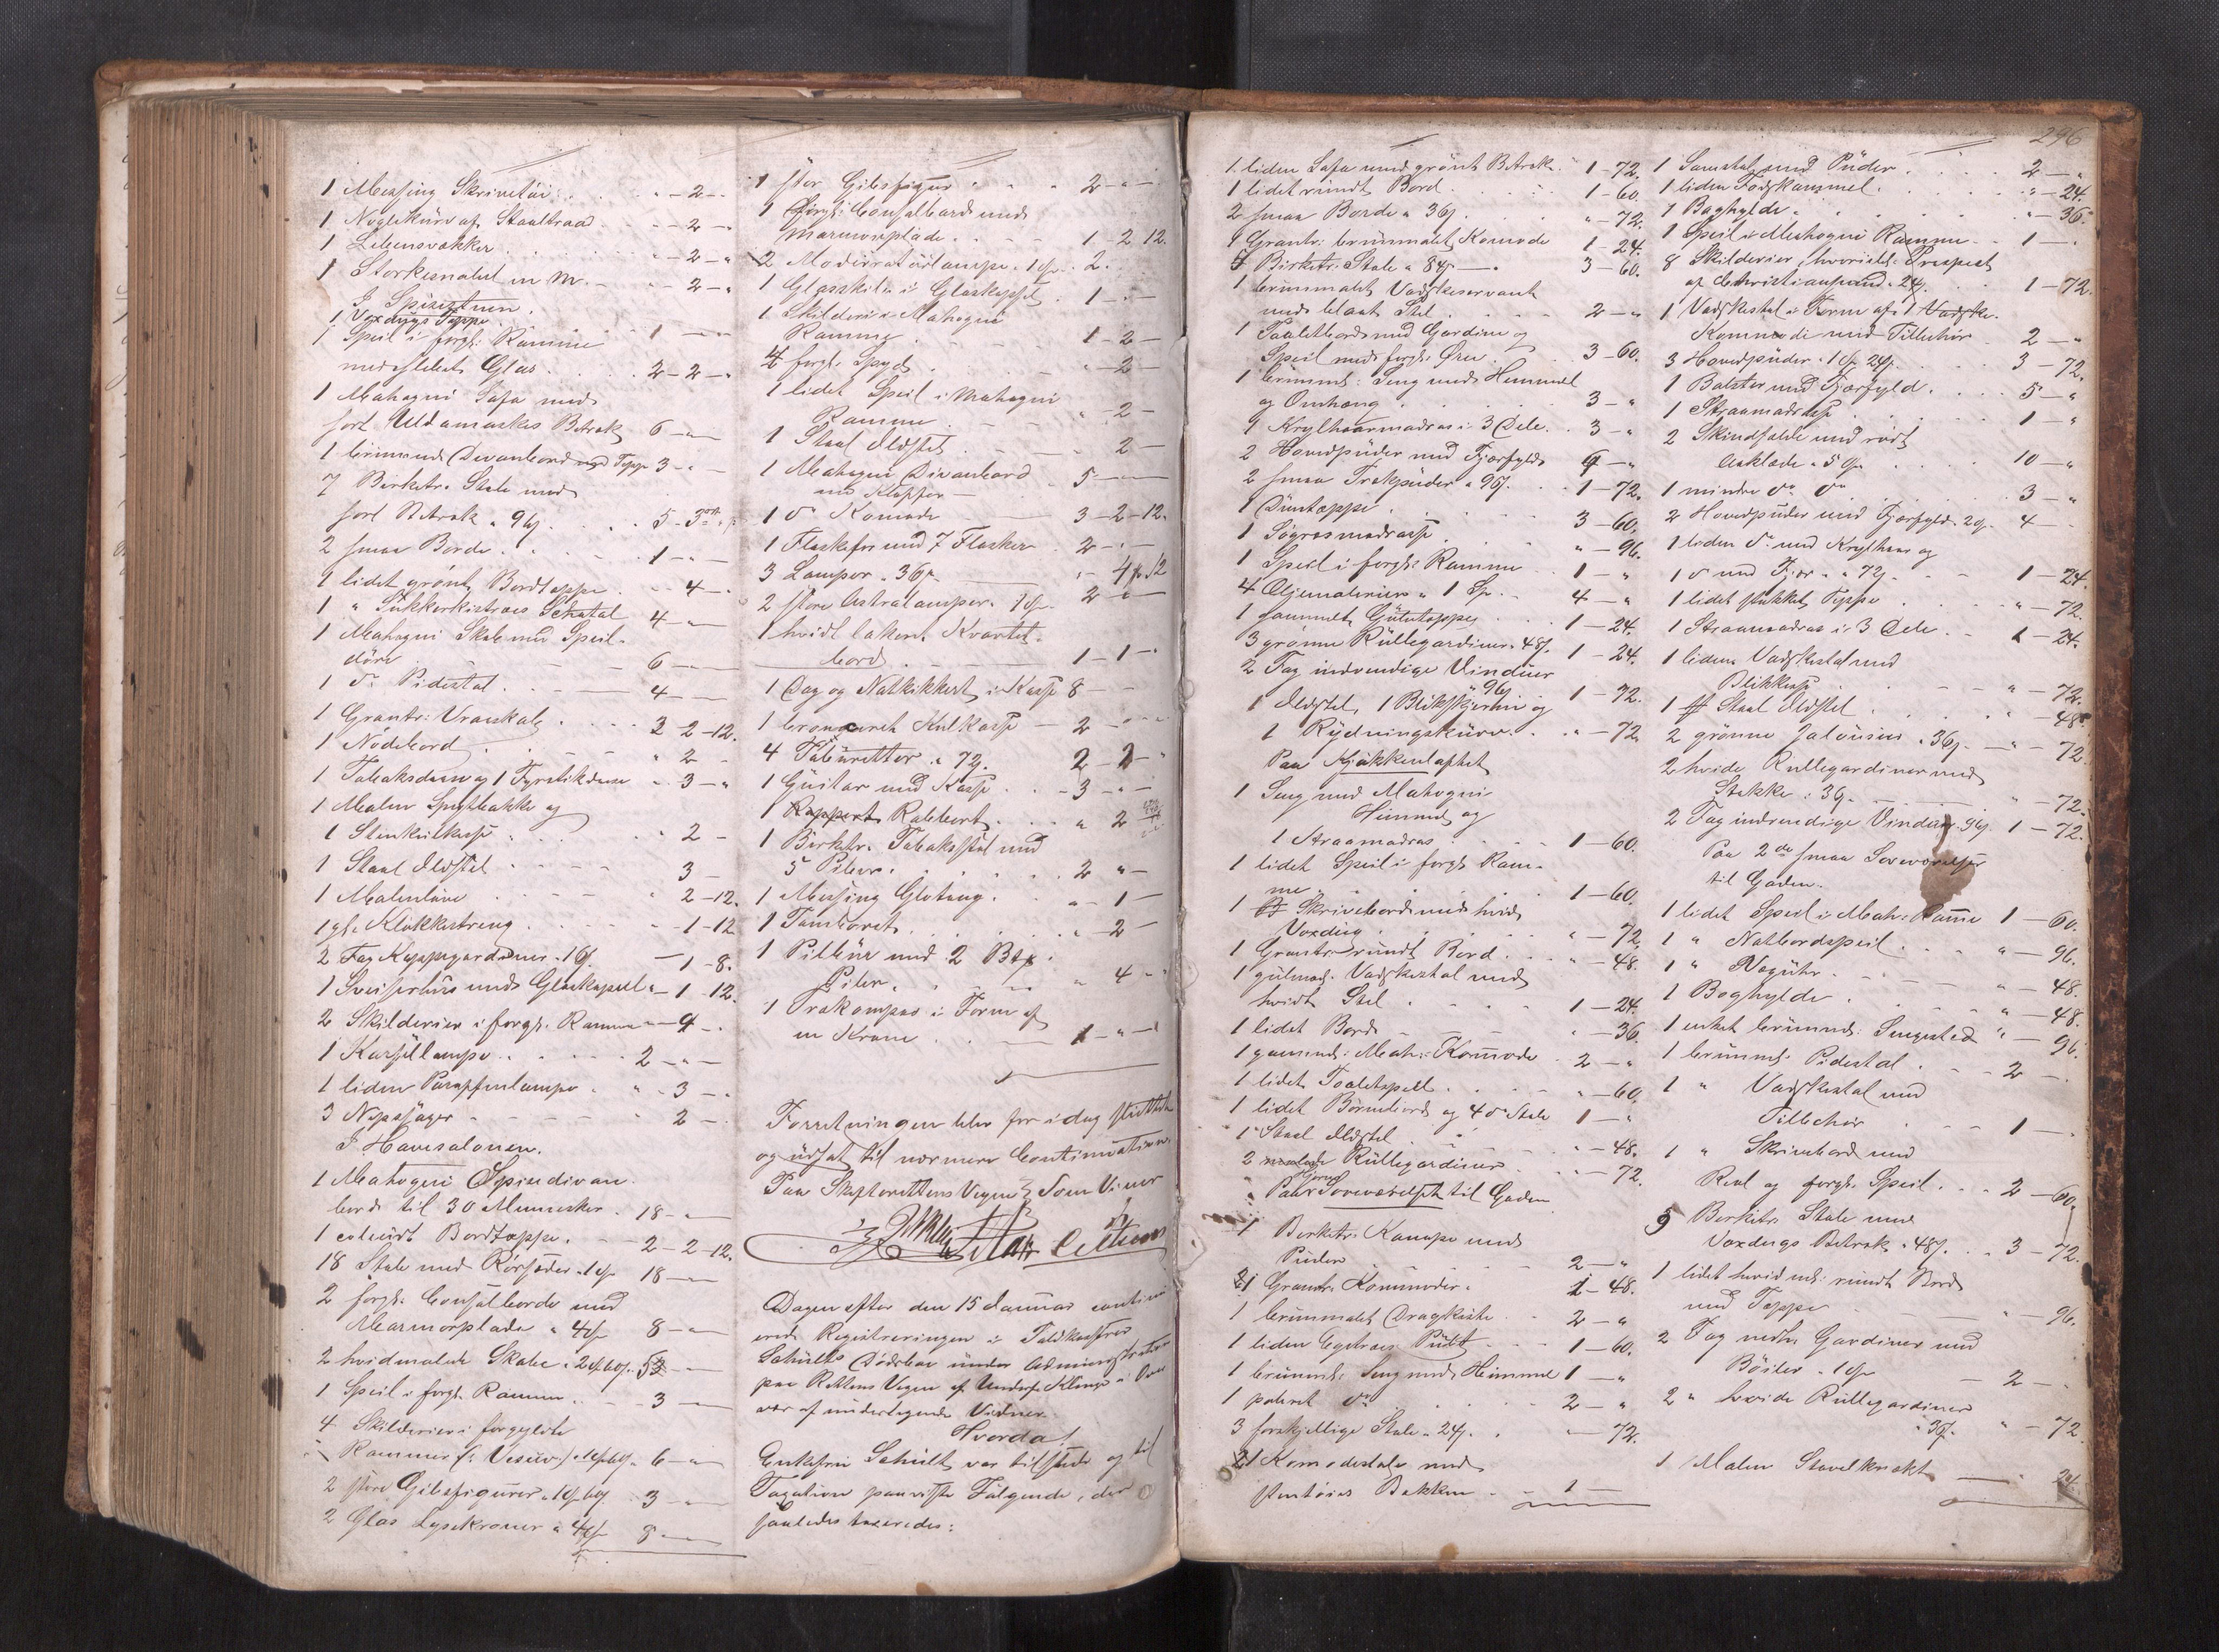 1 Messing Skrivetøi . . . " - 2 - "
1 Nøglekurv af Staaltraad . . " - 2 - "
1 Lebensvækker . . . " - 2 - "
1 Storkesnabel en m. - " - 2 - "
I Spisestuen.
1 Voxdugs Teppe .
1 Speil i forgt: Ramme 1 - " -
med slebet Glas . . . 2 - 2 - "
1 Mahogni Sofa med
sort Uldamaskes Betræk 6 - " -
1 brunmalt Divanbord med Teppe 3 - " -
7 Birketr. Stole med
sort Betræk a 96ß . . . 5 - 3
2 smaa Borde . . . 1 - " -
1 lidet grønt Bordteppe . " - 4 - "
1 " Sukkerkistræes 4 - " -
1 Mahogni Skab med Speil-
døre 6 - " -
1 do Pidestal . . . 4 - " -
1 Grantr: Vraaskab . . . 3 - 2 - 12.
1 Nødebord . . . " 2 -
1 Tobaksdaase og 1 Fyrstikdaase " - 3 - "
1 Malen Spyttbakke og
1 Stenkulkasse . . . " 2 -
1 Staal Ildstel . . . 3 -
1 Malenløve . . . " 2 - 12.
1 gl. Klokkestreng . . . " - 1 - 12
2 Fag Kappegardiner a 16ß - 1 - 8.
1 Sveiserhus med Glaskupel " - 1 - 12.
2 Skilderier i forgt. Ramme " - 4 - .
1 Karsellampe . . . 2 - " -
1 liden Paraffinlampe . " - 3 - .
3 Nipssager - - - " 2 - .
I Havesalonen.
1 Mahogni Spisedivan-
bord til 30 Mennesker . 18 - " -
1 coleurt Bordteppe . - 2 - 2 - 12.
18 Stole med Rørsæder a 1 Sp 18 - " -
2 forgt. Consolborde med
Marmorplade a 4 Sp 8 - " -
2 hvidmalede Skabe a 2 Sp 60ß. 5 -
1 Speil i forgt. Ramme . . 3 - " -
4 Skilderier i forgyldte
Rammer (: Vesuv:) a 1 Sp 60ß 6 - " -
2 store Gibsfigurer a 1 Sp 60ß 3 - " -
2 Glas Lysekroner a 4 Sp 8 - " -
1 stor Gibsfigur . . . 2 - " -
1 forgt. Consolbord med
Marmorplade . . . 1 - 2 12.
2 Moderatørlamper a 1 Sp . 2 .
1 Glasskilderi i Glaskupel . 1 - " -
1 Skilderi i Mahogni
Ramme . . . 1 - 2 -
4 forgt. Spyd . . . " - 2 -
1 lidet Speil i Mahogni
Ramme . . . " 2 -
1 Staal Ildstel . . . 2 -
1 Mahogni Divanbord
med Klapper - 5 - " -
1 do Komode - 3 - 2 - 12.
1 Flaskefor med 7 Flasker 2 - " -
3 Lamper a 36ß - " - 4 12
2 store Astrallamper a 1 Sp. 2 - " -
1 hvidt lakert Kvartet-
bord . - 1 - 1 - "
1 Dag og Natkikkert i Kasse 8 - " -
1 broncert Kulkasse - 2 - " -
4 Taburetter a 72ß. 2 - 2 - "
1 Guitar med Kasse . . - 3 - " -
1 Rappert Rabbert . . . " 2
1 Birketr. Tobaksstol med
5 Piber . . . 2 " -
1 Messing Glotang . . " - 1 -
1 Tamburet . . . " - 2 -
1 Pilbue med 2 Btr
Piler . . . " 4 - "
1 Orakompas i Form af
en Krone . . - 1 - " -
Forretningen blev for idag sluttet
og udsat til nærmere Continuation.
Paa Skifterettens Vegne Som Vidner
Dagen efter den 15 Januar contin-
erede Registreringen i Toldkasserer
Schults Dødsbo under Administration
paa Rettens Vegne af Underf. Klinge i Over-
vær af undertegnede Vidner.
Hvorda!
Enkefru Schult var tilstede og til
Taxation paaviste Følgende, der
saaledes taxeredes:
296
1 liden Sofa med grønt Betræk . 1 - 72.
1 lidet rundt Bord . . . 1 - 60.
2 smaa Borde a 36ß . . . " - 72.
1 Grantr. brunmalet Komode 1 - 24.
5 Birketr. Stole a 84ß - . 3 - 60.
1 brunmalet Vadskeservante
med blaat Stel . . . 2 - "
1 Toiletbord med Gardine og
Speil med forgt. Ører . . 3 - 60.
1 brunml: Seng med Himmel
og Omhæng . . . 3 - "
1 Krylhaarmadras i 3 Dele . 3 - "
2 Hovedpuder med Fjærfyld 4 - "
2 smaa Trækpuder a 96ß . . 1 - 72.
1 Duntæppe . . . 3 - 60.
1 Søgræsmadrasse . . . " - 96.
1 Speil i forgt. Ramme . 1 - "
4 Oljemalerier a 1 Sp. . 4 - "
1 gammelt Gulvteppe . . 1 - 24.
3 grønne Rullegardiner a 48ß. 1 - 24.
2 Fag indvendige Vinduer
a 96ß 1 - 72.
1 Ildstel, 1 Blikskjerm og
1 Rydningskurv . . . " - 72
Paa Kjøkkenloftet
1 Seng med Mahogni
Himmel og
1 Straamadras . . . 1 - 60.
1 lidet Speil i forgt. Ram-
me . . . 1 - 60.
1 Skrivebord med hvid
Voxdug . . . " - 72.
1 Grantr. rundt Bord . . . " - 48.
1 gulmal. Vadskestol med
hvidt Stel . . . 1 - 24.
1 lidet Bord . . . " - 36.
1 gammel: Mah: Komode . 2 - "
1 lidet Toiletspeil . . . " - 60.
1 lidet Børnebord og 4 do Stole 1 - "
1 Staal Ildstel . . . " - 48.
2 Rullegardiner . . . " - 72.
Paa Hjørne Soveværelset til Gaden
1 Birketr. Kanape med
Puder . . . 2 - "
1 Grantr. Kommode . 1 - 48.
1 brunmalet Dragkiste . 2 - "
1 liden Egetræes Pult . . 1 - 60.
1 brunml. Seng med Himmel 1 - "
1 poleret do . . . 2 - "
3 forskjellige Stole a 24ß . . " - 72.
1 Komodestol med
stentøies Bekken . . - 1 -
1 Lænstol med Puder . . . 2 - "
1 liden Fodskammel . . . " - 24.
1 Boghylde . . . " - 36.
1 Speil i Mahogni Ramme . . 1 - .
8 Skilderier, hvoriblt. Prospect
af Christiansund a 24ß . 1 - 72.
1 Vadskestol i Form af 1 Vadske-
Komode med Tilbehør 2 - "
3 Hovedpuder a 1 Sp 24ß . 3 - 72.
1 Bolster med Fjærfyld . . . 5 - "
1 Straamadrasse . . . 1 - "
2 Skindfælde med rødt
Aaklæde a 5 Sp . . . 10 - "
1 mindre do do . . . 3 - "
2 Hovedpuder med Fjærfyld a 2 Sp. 4 -
1 liden do med Krylhaar og
1 do med Fjær a 72ß . . 1 - 24.
1 lidet stukket Teppe . . . " - 72
1 Straamadras i 3 Dele . . 1 - 24.
1 liden Vadskestol med
Blikkasse . . . " - 72.
1 Staal Ildstel . . . " - 48.
2 grønne Jalousier a 36ß . - " - 72.
2 hvide Rullegardiner med
Stokke a 36ß - " - 72.
2 Fag indvendige Vinduer a 96ß . 1 - 72.
Paa 2de smaa Soveværelser
til Gaden.
1 lidet Speil i Mah: Ramme 1 - 60.
1 " Natbordspeil . . . " - 96.
1 " Væguhr . . . " - 48.
1 Boghylde . . . " - 48.
1 enkelt brunml: Sengested " - 96.
1 brunml. Pidestal . . - 2 - .
1 " Vadskestol med
Tilbehør . . - 1 - .
1 " Skrivebord med
Reol og forgt. Speil . . . 2 - 60.
5 Birketr Stole med
Voxdugs Betræk a 48ß . . . 3 - 72.
1 lidet hvidml: rundt Bord
med Teppe - " - 96.
2 Fag nettls Gardiner med
Bøiler a 1 Sp - 2 - .
2 " hvide Rullegardiner
a 36ß. " - 72.
1 Malen Støvelknekt - " 24.